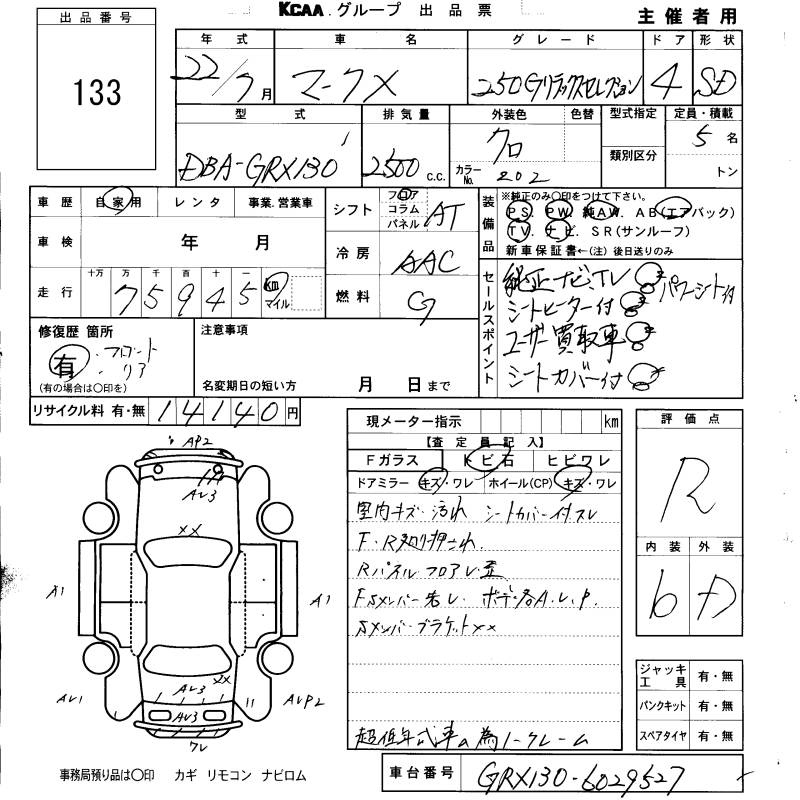 KCAA グループ 出品票
主催者用
出品番号
133
年式 車名 グレード ドア 形状
22/7月 マークX 250Gリラックスセレクション 4 SD
型式 排気量 外装色 色替 型式指定 定員・積載
DBA-GRX130 2500c.c. クロ 5名
カラーNo. 202 類別区分 トン
車歴 自家用 レンタ 事業.営業車
車検 年 月
走行 十万 万 千 百 十 一
75945 km マイル
シフト フロア コラム パネル AT
冷房 AAC
燃料 G
装備品 ※純正のみ〇印をつけて下さい。
PS. PW. 純AW. AB(エアバック)
TV. ナビ. SR(サンルーフ)
新車保証書←(注)後日送りのみ
セールスポイント
純正ナビ、TV パワーシート付
シートヒーター付
ユーザー買取車
シートカバー付
修復歴 箇所
有・フロント・リア
(有の場合は〇印を)
注意事項
名変期日の短い方 月 日まで
リサイクル料 有・無 14140円
現メーター指示 km
【査定員記入】
Fガラス トビ石 ヒビワレ
ドアミラー キズ・ワレ ホイール(CP) キズ・ワレ
室内キズ・汚れ シートカバー付スレ
F・R廻り押され
Rパネルフロアレ歪
FSメンバー先レ ボデー各A.U.P.
Sメンバーブラケット××
超低年式車の為ノークレーム
評価点
R
内装 外装
b D
ジャッキ工具 有・無
パンクキット 有・無
スペアタイヤ 有・無
AP2
AU3
××
A1
A1
AU1
AU3
××
AUP2
AU3
ワレ
事務局預り品は〇印 カギ リモコン ナビロム
車台番号 GRX130-6029527